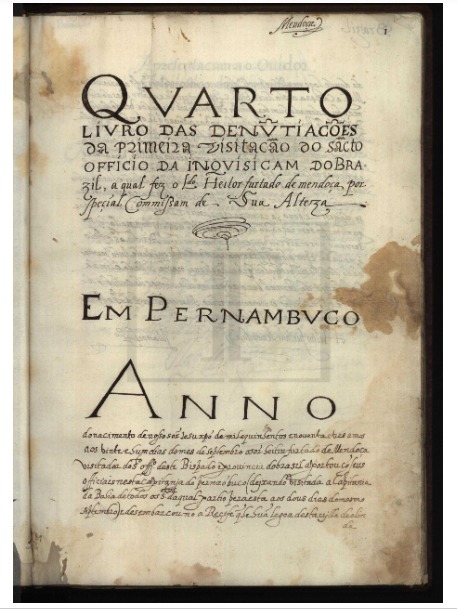 Mendoça
1
QVARTO
LIVRO DAS DENŨTIACÕES
da primeira visitação do sãcto
OFFICIO DA INQVISICAM DO BRA
zil, a qual fez o Ldo Heitor furtado de mendoça por
special Commissam de Sua Alteza
EM PERNAMBVCO
ANNO
do nacimento de nosso sõr Jesu xpõ de mil e quinhentos e nouenta e tres annos
aos vinte e hum dias do mes de septembro o sõr heitor furtado de Mendoça
visitador do sto offo deste Bispado e prouincia do brasil aportou cõ seus
officiaes nesta Capitania de pernambuco (depois de visitada a Capitania
da Bahia de todos os Stos da qual partio pera esta aos dous dias do mesmo
septembro) e desembarcou no a Recife
de